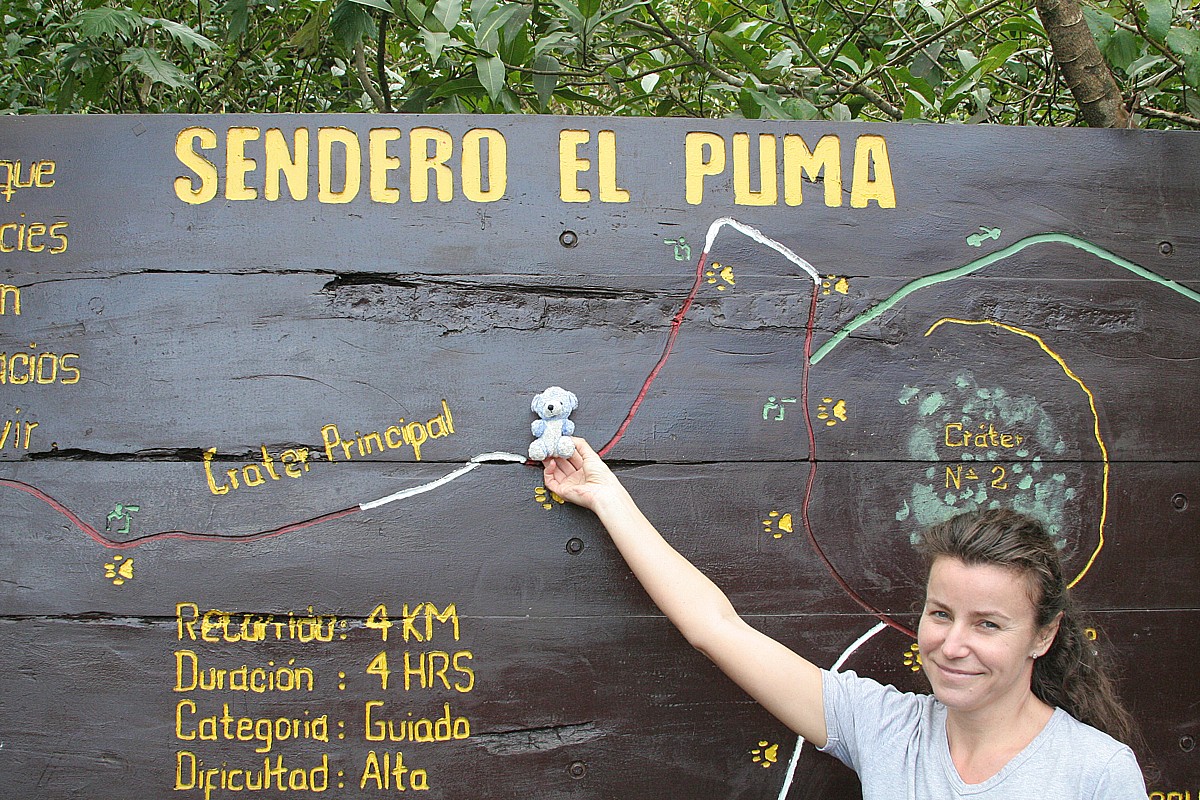 SENDERO EL PUMA
que
cies
n
acios
vir
Crater Principal
Cráter
Nº 2
Recorrido: 4 KM
Duración : 4 HRS
Categoria : Guiado
Dificultad : Alta